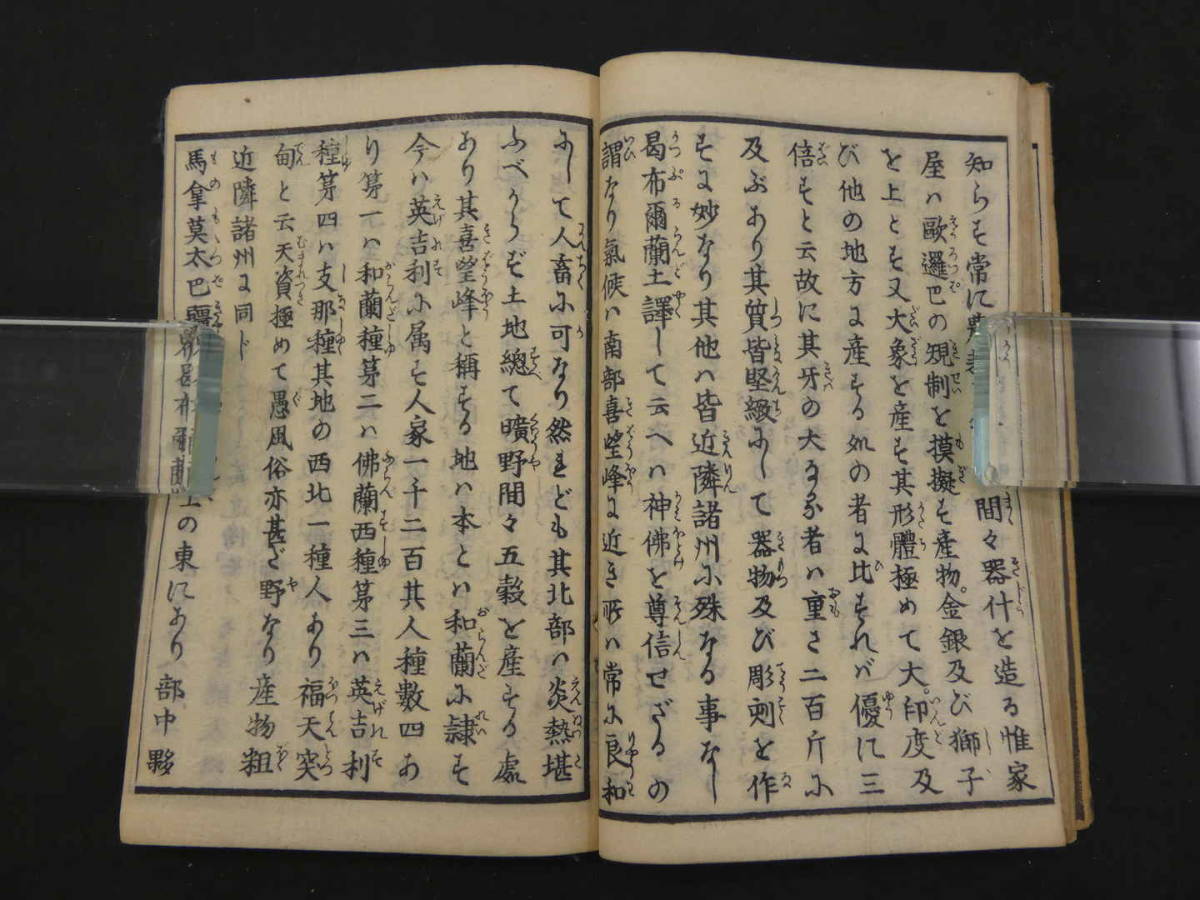 知らず常に 間々器什を造る惟家
屋ハ歐邏巴の規制を摸擬す産物。金銀及び獅子
を上とす又大象を産す其形體極めて大。印度及
び他の地方に産する処の者に比すれバ優に三
倍すと云故に其牙の大なる者ハ重さ二百斤に
及ぶあり其質皆堅緻にして器物及び彫刻を作
すに妙なり其他ハ皆近隣諸州に殊なる事なし
曷布爾蘭土譯して云へハ神佛を尊信せざるの
謂なり氣候ハ南部喜望峰に近き所ハ常に良和
にして人畜に可なり然れども其北部ハ炎熱堪
ふべからず土地總て曠野間々五穀を産する處
あり其喜望峰と稱する地ハ本とハ和蘭に隷す
今ハ英吉利に属す人家一千二百其人種數四あ
り第一ハ和蘭種第二ハ佛蘭西種第三ハ英吉利
種第四ハ支那種其地の西北一種人あり福天突
甸と云天資極めて愚風俗亦甚だ野なり産物粗
近隣諸州に同じ
馬拿莫太巴疆界曷布爾蘭土の東にあり部中夥